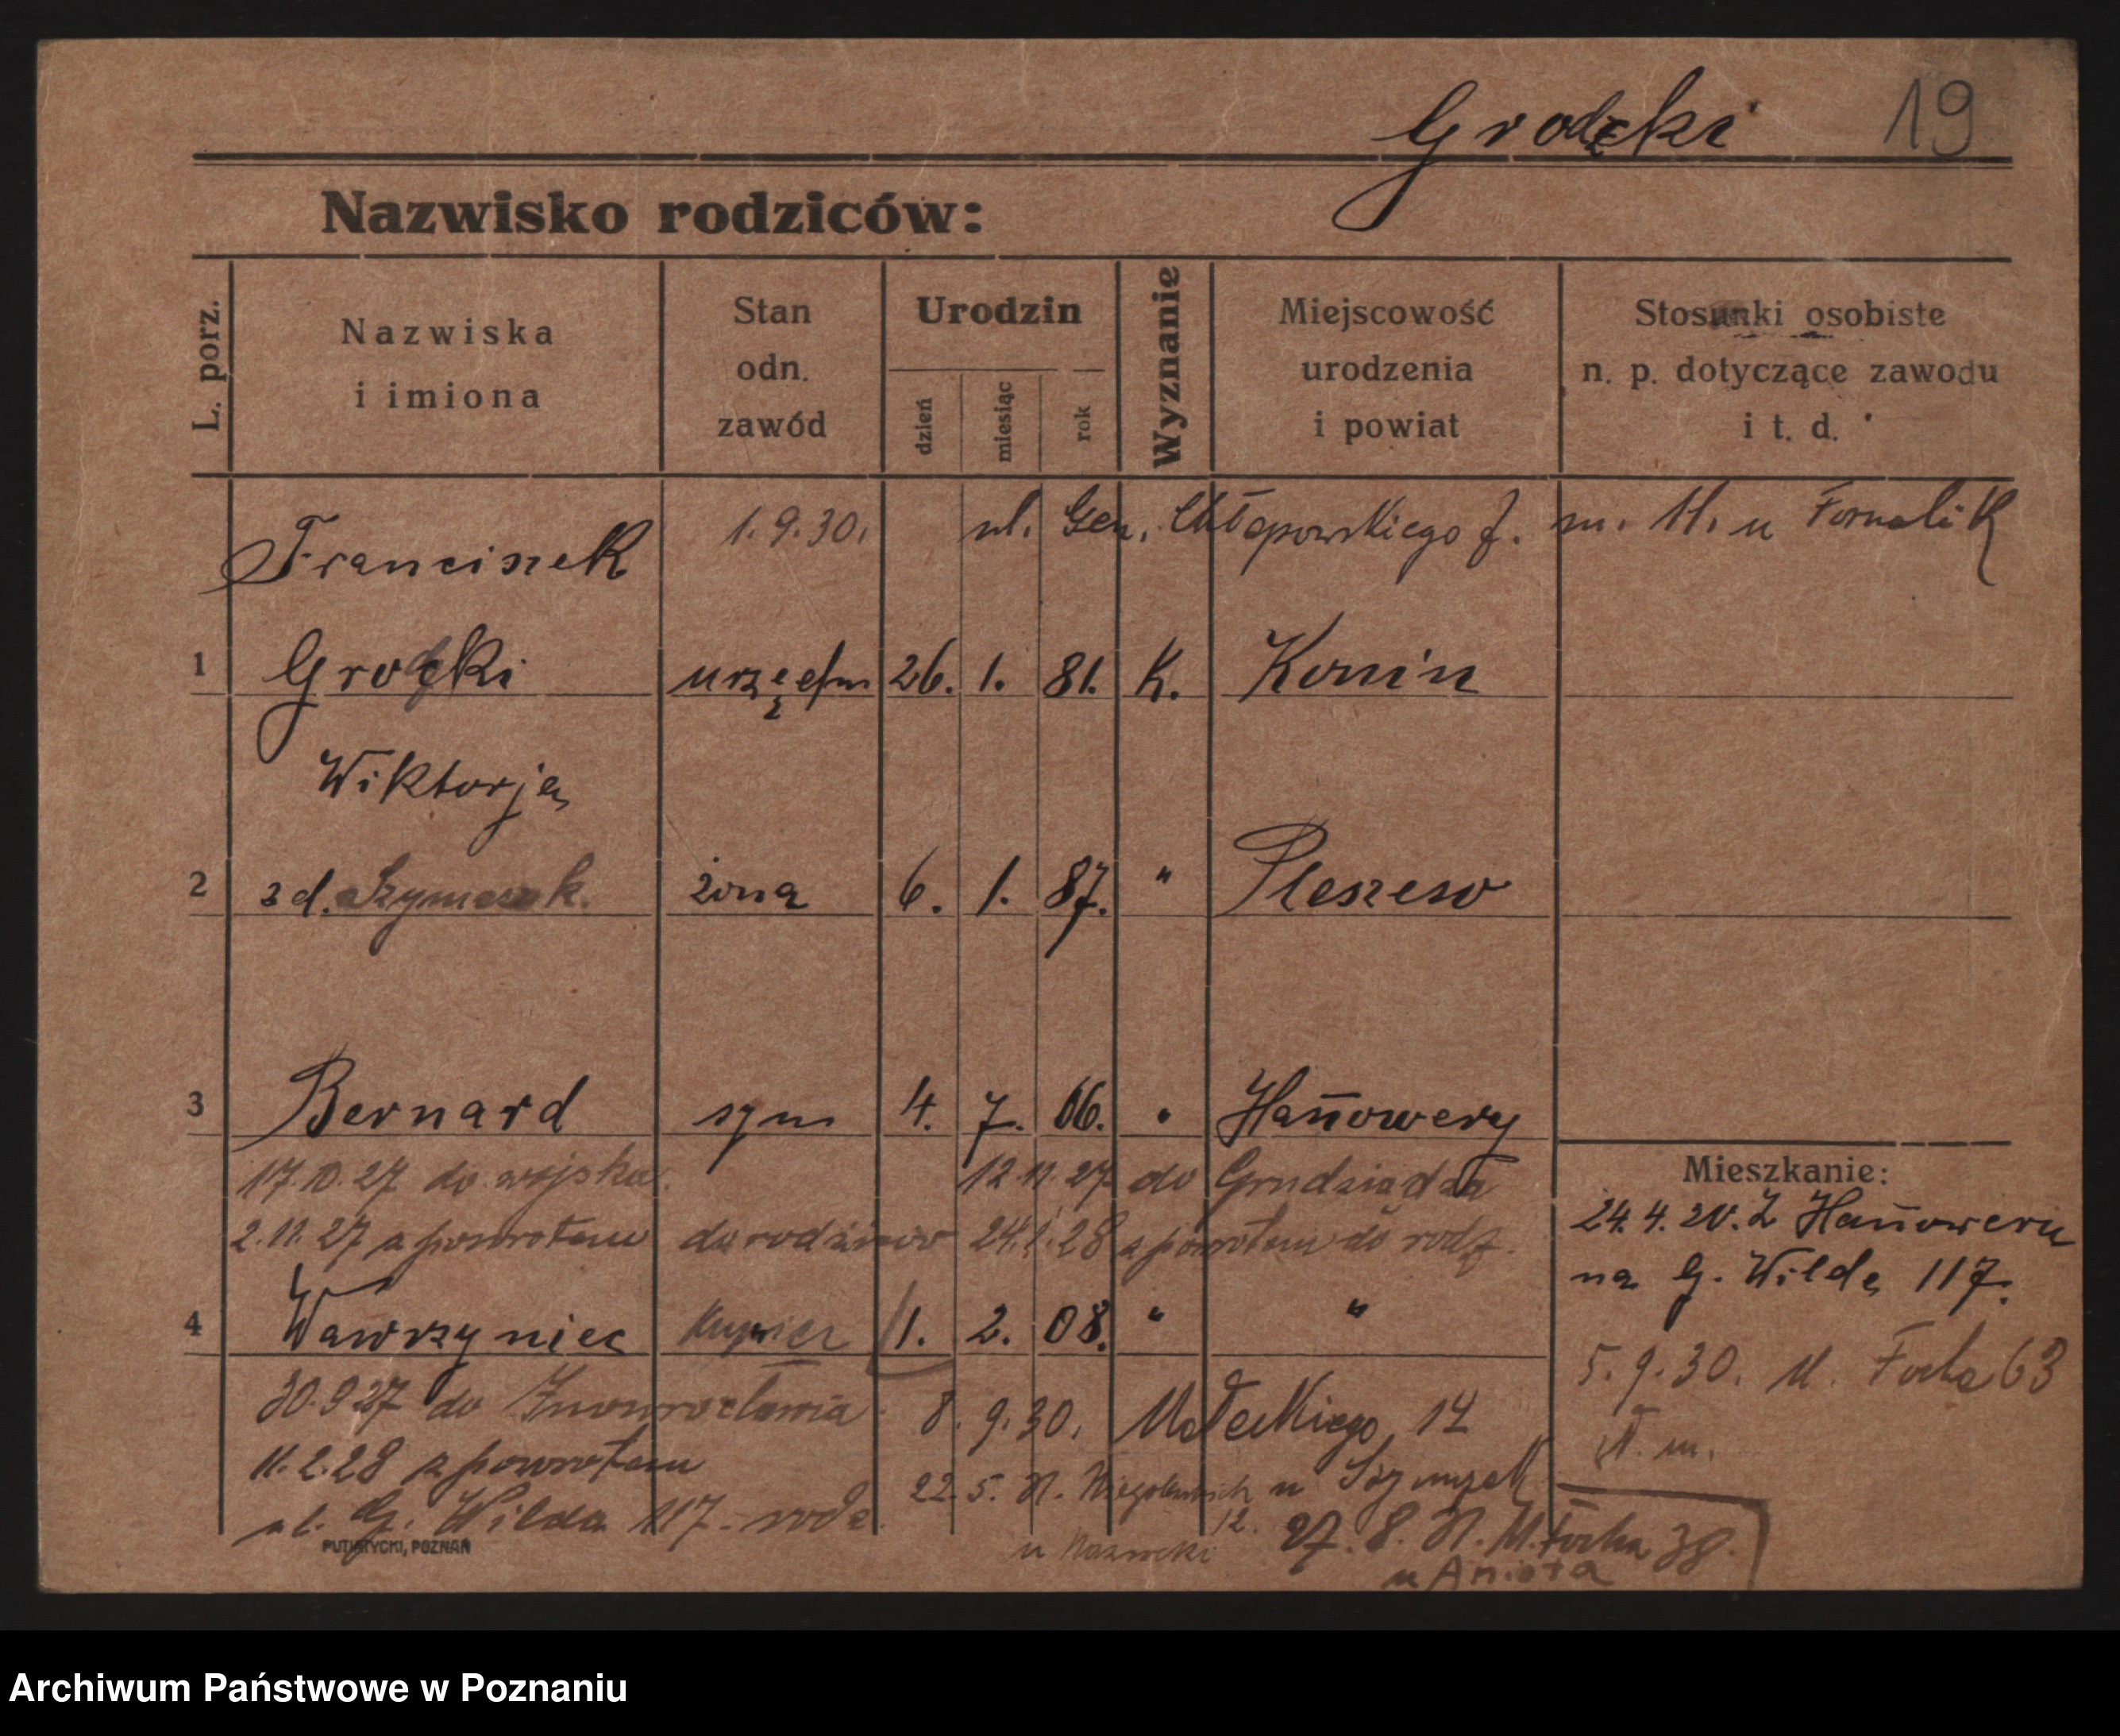 Grodzki 19
Nazwisko rodziców:
L. porz.
Nazwiska
i imiona
Stan
odn.
zawód
Urodzin
dzień
miesiąc
rok
Wyznanie
Miejscowość
urodzenia
i powiat
Stosunki osobiste
n. p. dotyczące zawodu
i t. d.
Franciszek 1.9.30. ul. Gen. Chłapowskiego 7. m. 11. u
1 Grodzki urzędn 26. 1. 81. K. Konin
Wiktorja
2 z d. Szymczak. żona 6. 1. 87. " Pleszew
3 Bernard syn 4. 7. 06. " Hañowery
Mieszkanie:
17.10.27 do wojska. 12.11.27 do Grudziądza
24.4.20. Z Hañoweru
2.11.27 z powrotem do rodziców 24.1.28 z powrotem do rodz.
na G. Wilde 117.
4 Wawrzyniec kupiec 11. 2. 08. " "
5.9.30. M. Focha 63
30.9.27 do Inowrocławia. 8.9.30. Małeckiego 14
II. m.
11.2.28 z powrotem
22.5. 12. u Szymczak
ul. G. Wilda 117 - rodz.
27.8. M. Focha 38.
PUTIATYCKI, POZNAŃ
u
u Anioła
Archiwum Państwowe w Poznaniu